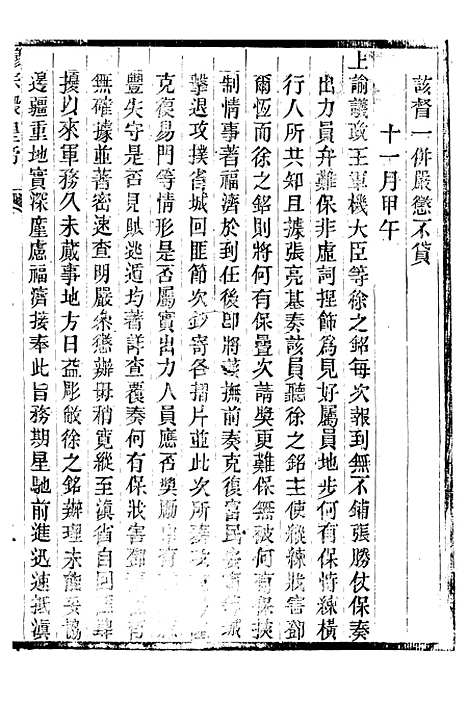 該督一併嚴懲不貸
十一月甲午
上諭議政王軍機大臣等徐之銘每次報到無不鋪張勝仗保奏
出力員弁難保非虛詞捏飾為見好屬員地步何有保恃練橫
行人所共知且據張亮基奏該員聽徐之銘主使縱練狀害鄧
爾恆而徐之銘則將何有保疊次請獎更難保無被何有保挾
制情事著福濟於到任後卽將該撫前奏克復富民安寧城
擊退攻撲省城回匪節次鈔寄各摺片並此次所奏攻
克復易門等情形是否屬實出力人員應否獎勵出力
豐失守是否見賊逃遁均著詳查覆奏何有保狀害鄧
無確據並著密速查明嚴參懲辦毋稍寬縱至滇省自回匪肆
擾以來軍務久未蕆事地方日益彫敝徐之銘辦理未能妥協
邊疆重地實深廑慮福濟接奉此旨務期星馳前進迅速抵滇